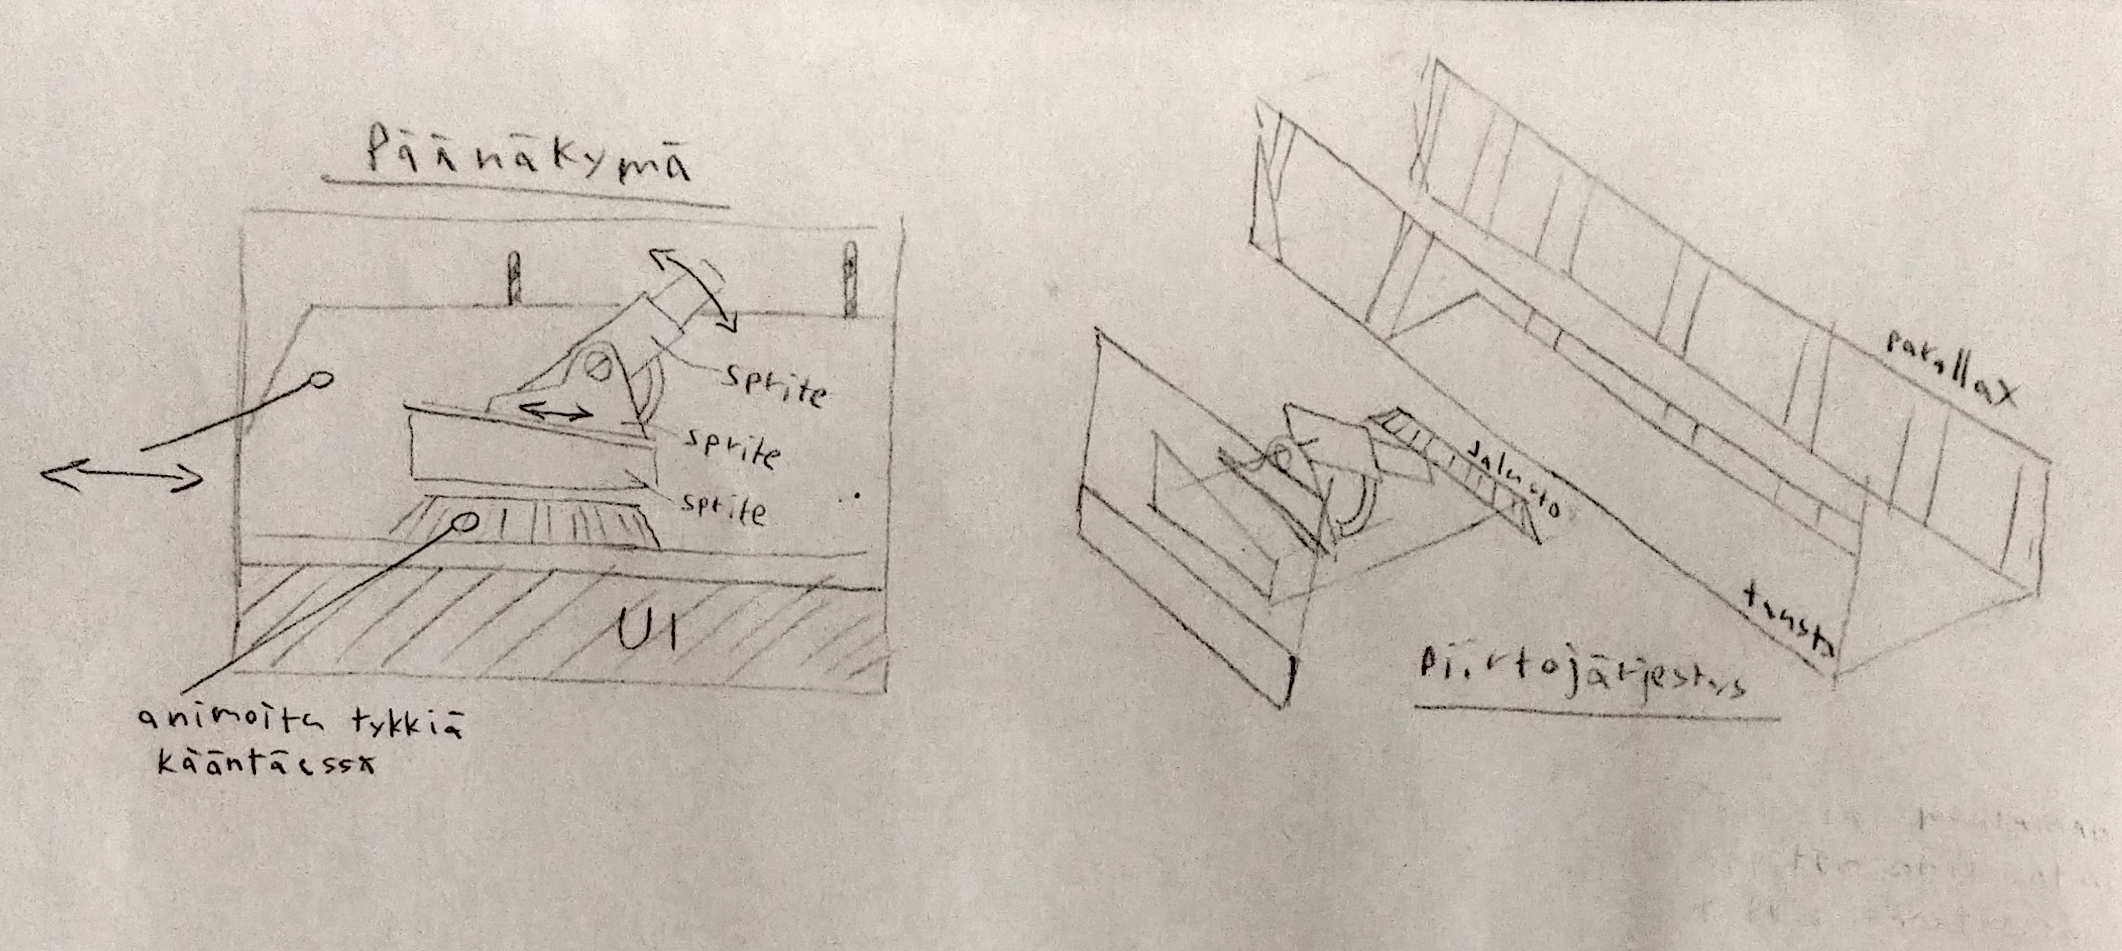 Päänäkymä
sprite
sprite
sprite
UI
animoitu tykkiä
kääntäessä
parallax
tausta
Piirtojärjestys